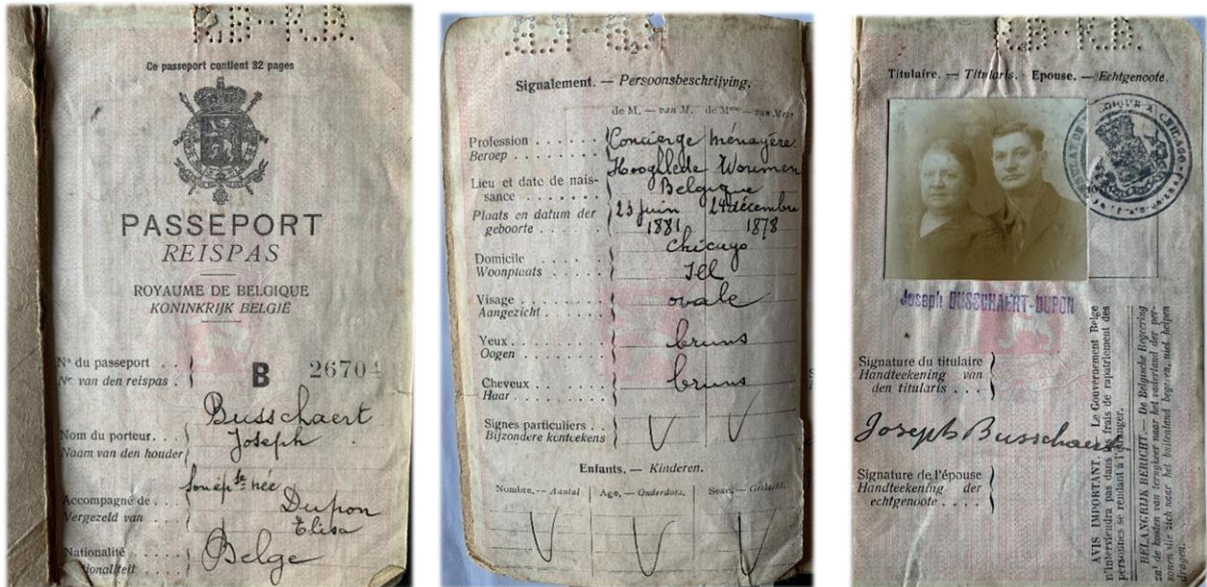 Ce passeport contient 32 pages
PASSEPORT
REISPAS
ROYAUME DE BELGIQUE
KONINKRIJK BELGIË
N° du passeport . .
Nr. van den reispas .
B 26704
Busschaert
Nom du porteur. . .
Joseph
Naam van den houder
son épse née
Accompagné de . .
Dupon
Vergezeld van . . .
Elisa
Nationalité . . . . .
Belge
2
Signalement. — Persoonsbeschrijving.
de M. — van M. de Mme — van Mevr
Profession . . . . . . Concierge ménagère
Beroep . . . . . . .
Hooghlede Woumen
Lieu et date de nais-
sance . . . . . . .
Belgique
Plaats en datum der
geboorte . . . . .
23 juin 24 décembre
1881 1878
Domicile . . . . . . . Chicago
Woonplaats . . . . . Ill
Visage . . . . . . . ovale
Aangezicht . . . . .
Yeux . . . . . . . . bruns
Oogen . . . . . . .
Cheveux . . . . . . . bruns
Haar . . . . . . . .
Signes particuliers . .
Bijzondere kenteekens
Enfants. — Kinderen.
Nombre. — Aantal Age. — Ouderdom. Sexe. — Geslacht.
Titulaire. — Titularis. Epouse. — Echtgenoote.
Joseph BUSSCHAERT-DUPON
Signature du titulaire
Handteekening van
den titularis . . . .
Joseph Busschaert
Signature de l'épouse
Handteekening der
echtgenoote . . . .
AVIS IMPORTANT. — Le Gouvernement Belge
n'interviendra pas dans les frais de rapatriement des
personnes se rendant à l'étranger.
BELANGRIJK BERICHT. — De Belgische Regeering
zal de kosten van terugkeer naar het vaderland der per-
sonen die zich naar het buitenland begeven, niet helpen
dragen.